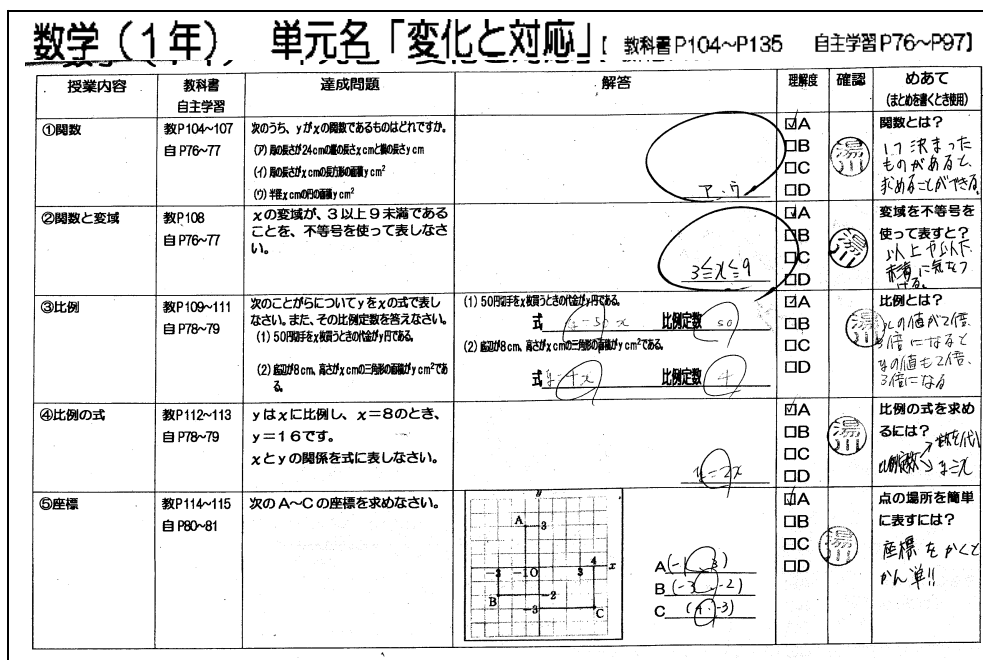 数学（1年） 単元名「変化と対応」[ 教科書P104～P135 自主学習P76～P97]
授業内容 教科書 自主学習 達成問題 解答 理解度 確認 めあて (まとめを書くとき使用)
①関数
教P104～107
自P76～77
次のうち、yがxの関数であるものはどれですか。
(ア) 周の長さが24cmの縦の長さxcmと横の長さycm
(イ) 周の長さがxcmの長方形の面積ycm²
(ウ) 半径xcmの円の面積ycm²
ア、ウ
☑A
□B
□C
□D
湯川
関数とは？
1つ決まった
ものがあると、
求めることができる。
②関数と変域
教P108
自P76～77
xの変域が、3以上9未満である
ことを、不等号を使って表しなさ
い。
3≦x≦9
☑A
□B
□C
□D
湯川
変域を不等号を
使って表すと？
以上や以下、
未満に気をつ
ける。
③比例
教P109～111
自P78～79
次のことがらについてyをxの式で表し
なさい。また、その比例定数を答えなさい。
(1) 50円切手をx枚買うときの代金がy円である。
(2) 底辺が8cm、高さがxcmの三角形の面積がycm²であ
る。
(1) 50円切手をx枚買うときの代金がy円である。
式 y=50x 比例定数 50
(2) 底辺が8cm、高さがxcmの三角形の面積がycm²である。
式 y=4x 比例定数 4
☑A
□B
□C
□D
湯川
比例とは？
xの値が2倍、
3倍になると
yの値も2倍、
3倍になる
④比例の式
教P112～113
自P78～79
yはxに比例し、x=8のとき、
y=16です。
xとyの関係を式に表しなさい。
y=2x
☑A
□B
□C
□D
湯川
比例の式を求め
るには？
比例定数
⑤座標
教P114～115
自P80～81
次のA～Cの座標を求めなさい。
y
A 3
-3 -1 O 3 4 x
B -2
-3 C
A(-1, 3)
B(-3, -2)
C (4, -3)
☑A
□B
□C
□D
湯川
点の場所を簡単
に表すには？
座標をかくと
かん単!!